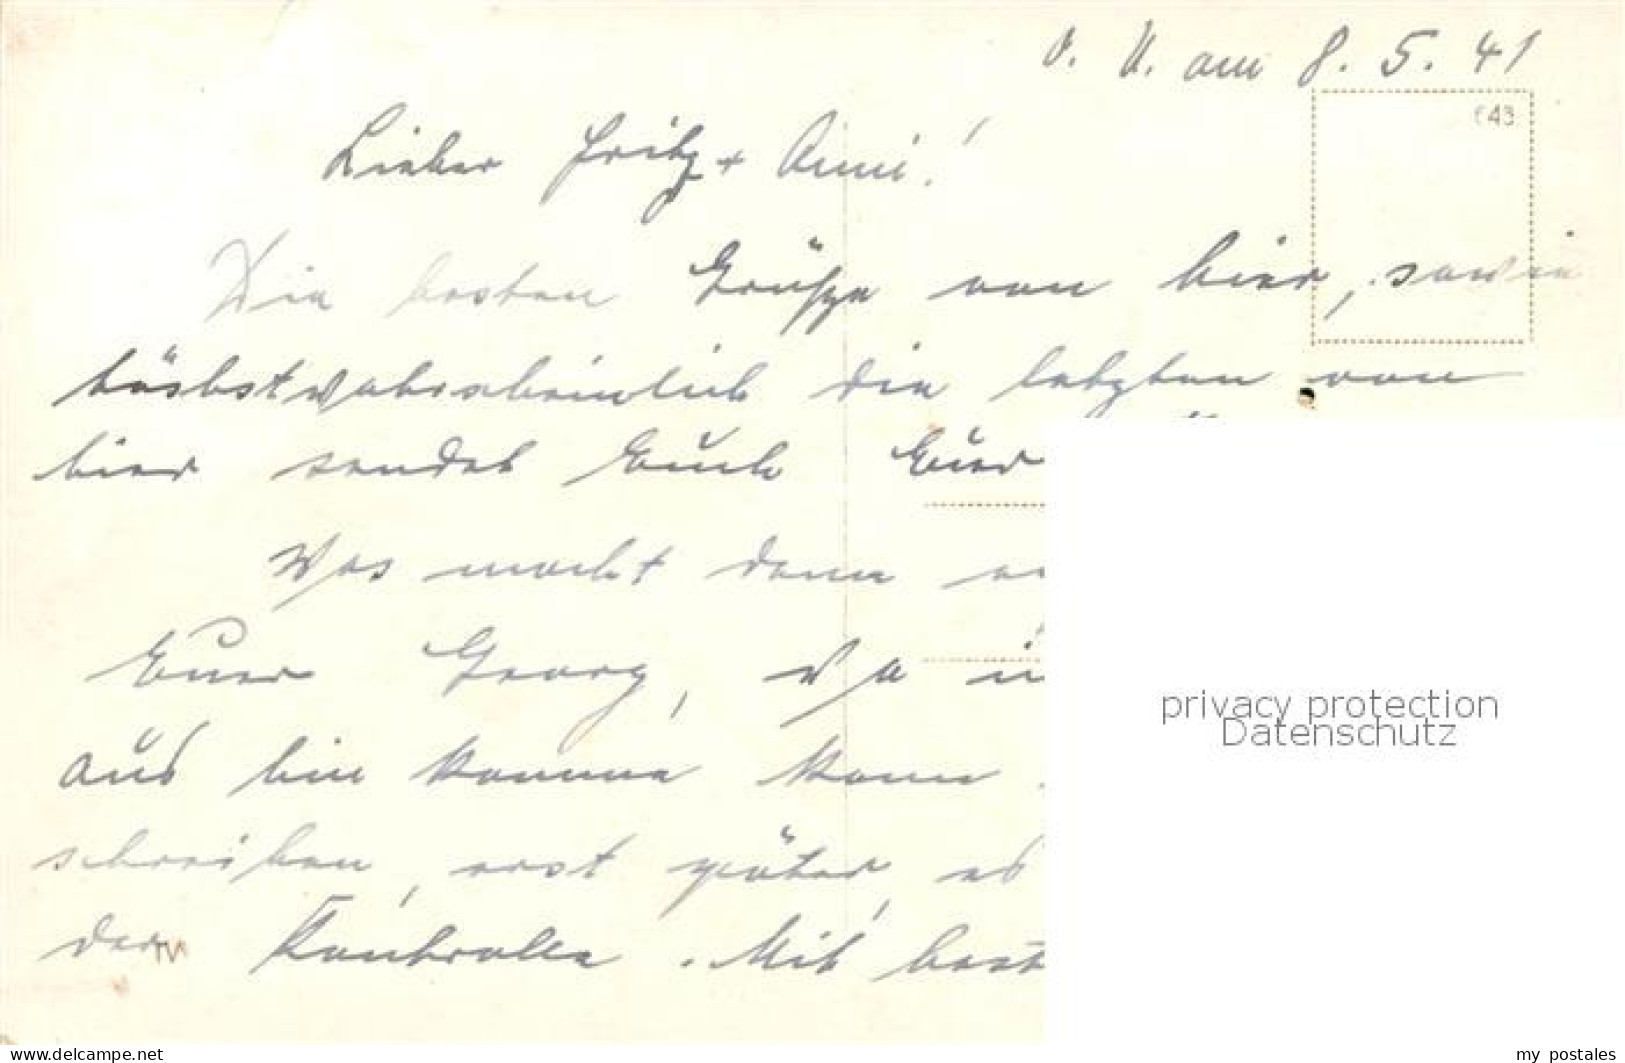 O. U. am 8. 5. 41
643
Lieber Fritz + Anni!
Die besten Grüße von hier, sowie
höchstwahrscheinlich die letzten von
hier sendet Euch Euer
Was macht denn
Euer Georg, wo
aus bin komme kann
schreiben, erst später, es
der Kontrolle. Mit best
privacy protection
Datenschutz
www.delcampe.net
my_postales